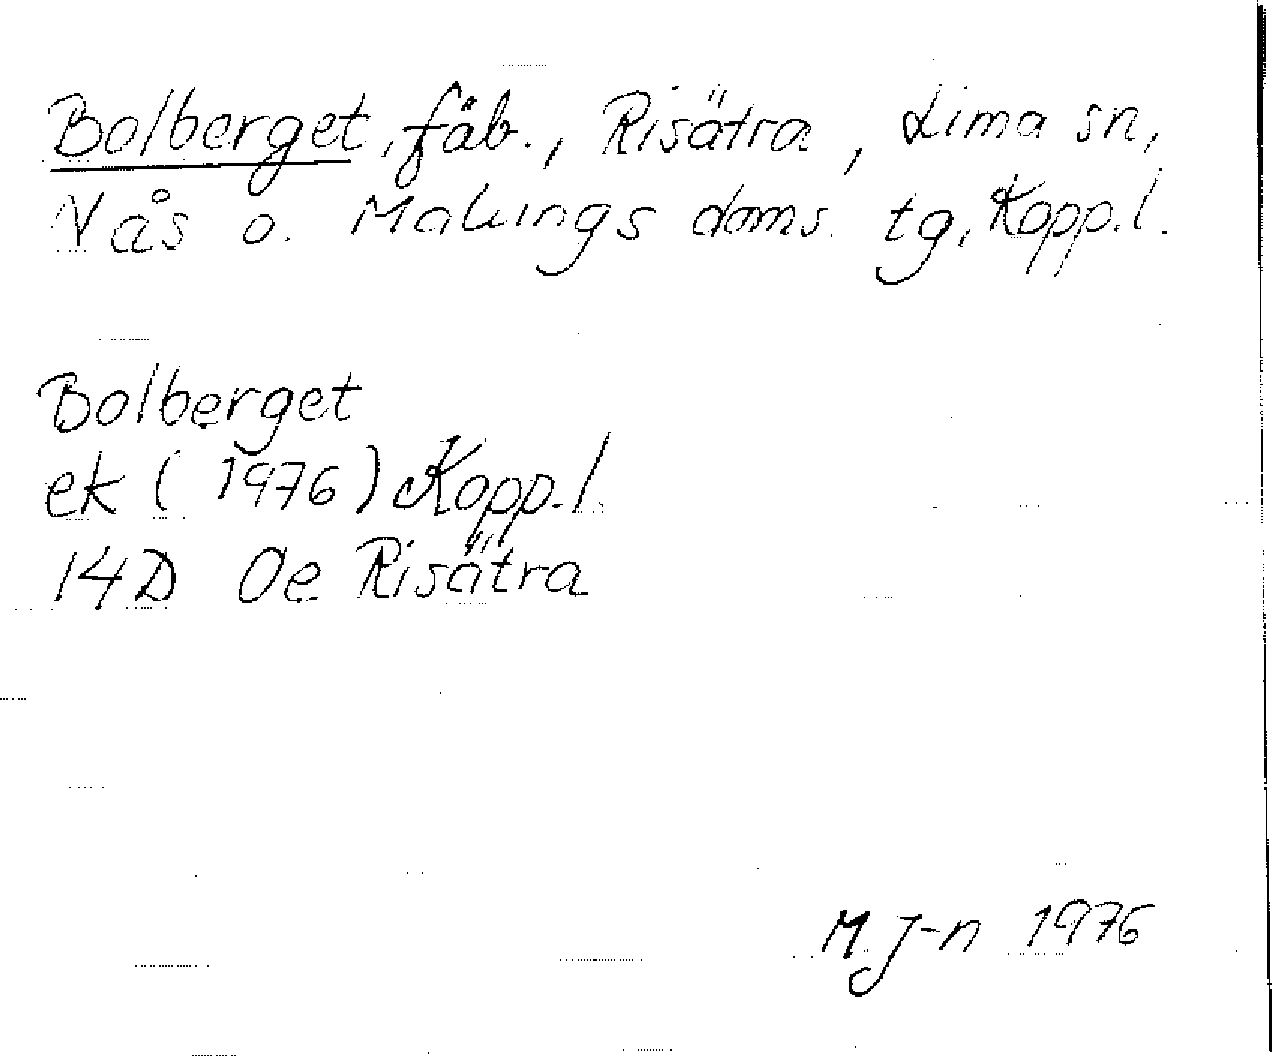 Bolberget, fäb., Risätra, Lima sn,
Nås o. Malungs doms. tg, Kopp.l.
Bolberget
ek (1976) Kopp.l.
14D 0e Risätra
M J-n 1976